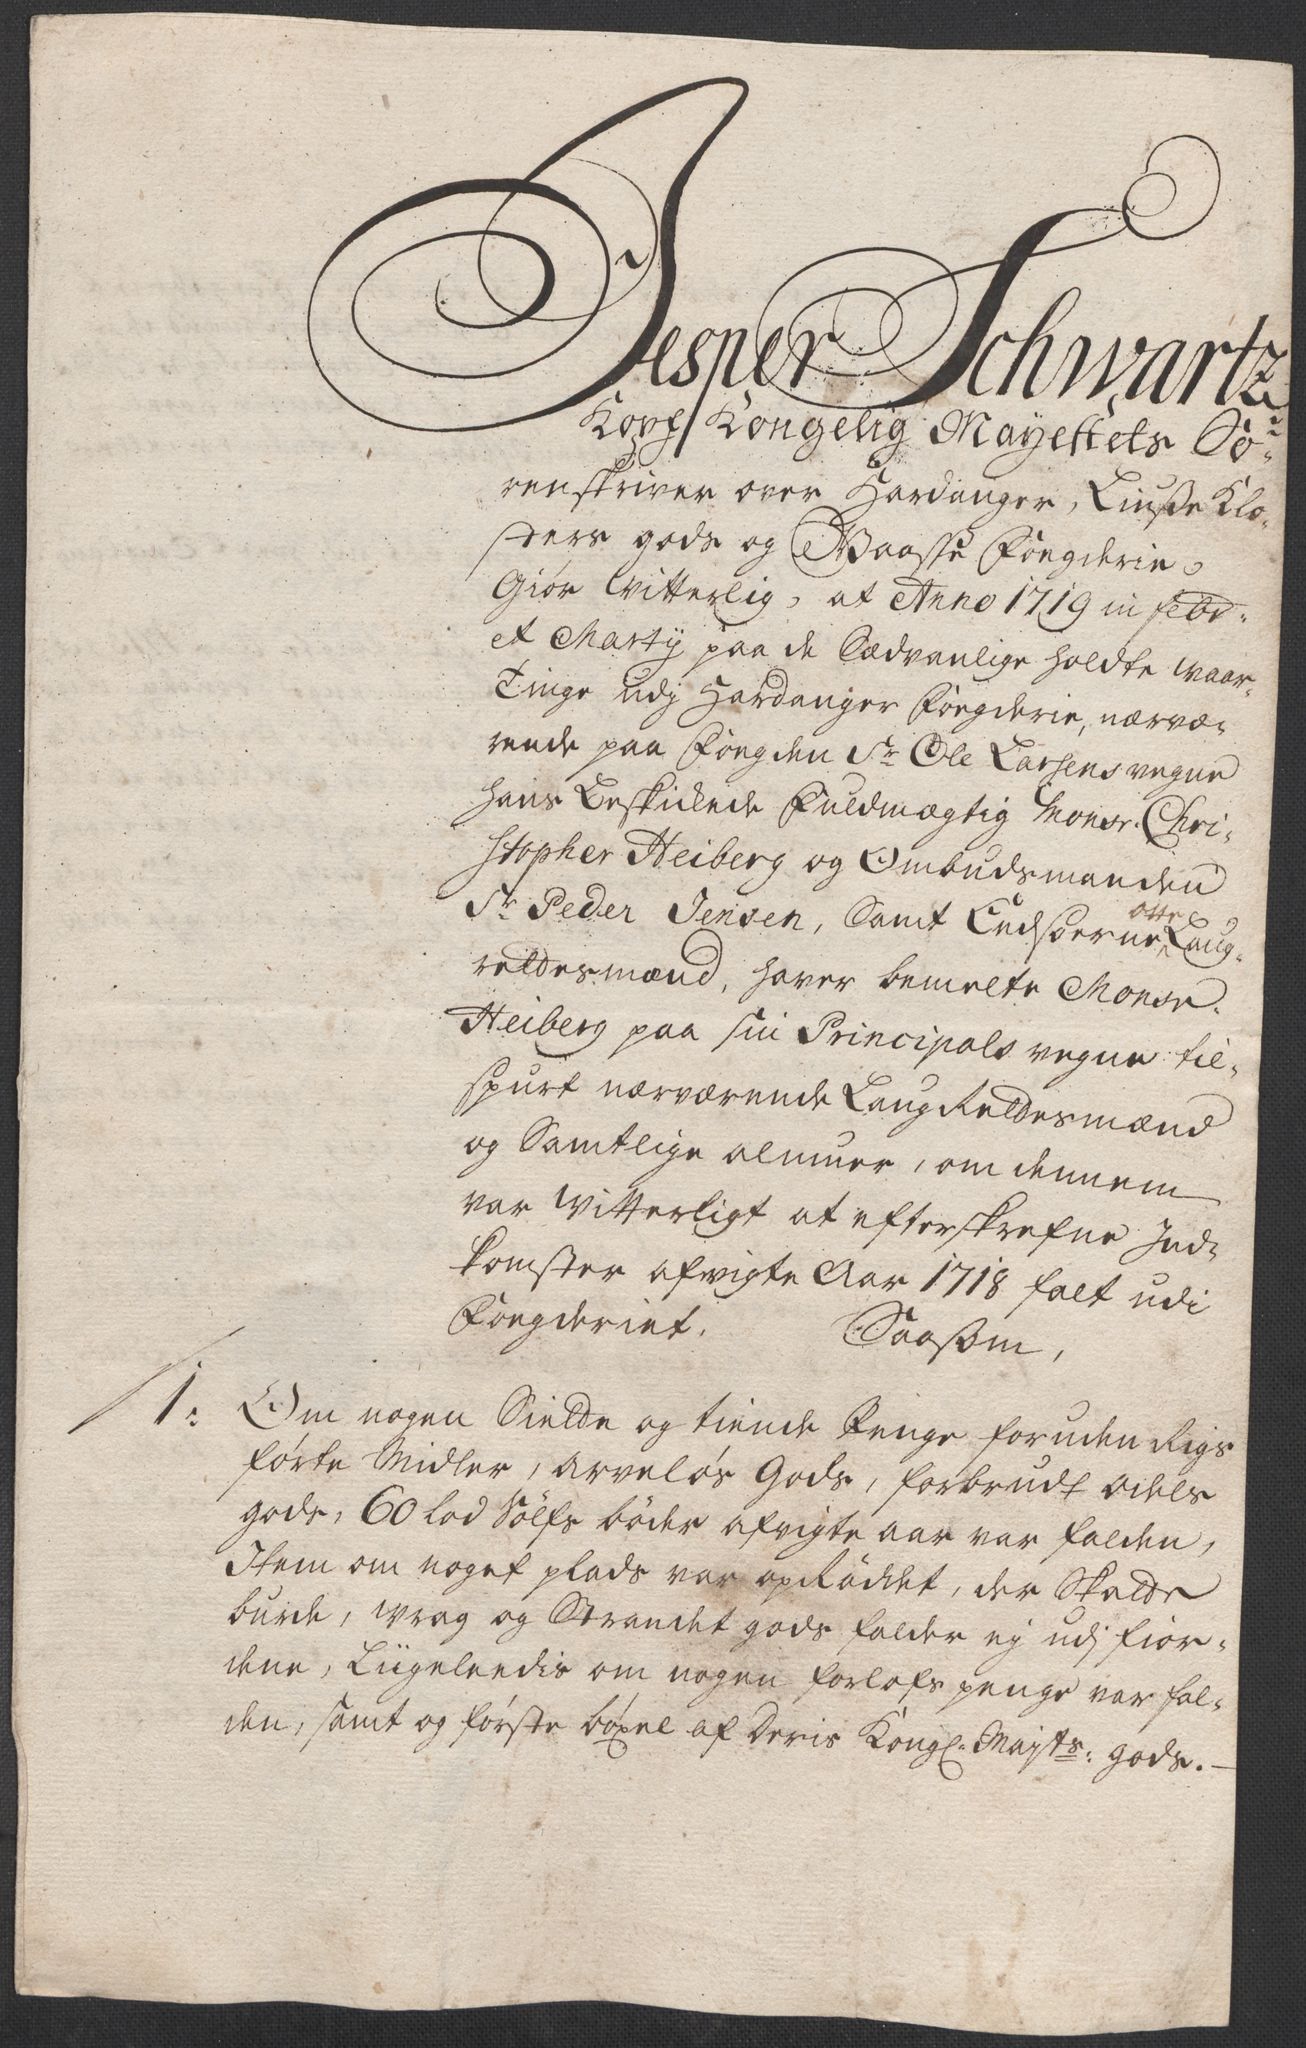 Jesper Schwartz
Kopf Kongelig Mayettets So¬
renskriver over Hardanger, Liusse Klo¬
sters gods og Waasse Fougderie,
Giør Witterlig, at Anno 1719 in febr.
et Martij paa de Sædvanlige holdte waar¬
Tinge udj Hardanger Fougderie, nærvæ¬
rende paa Fougden Sr Ole Larsens vegne
hans Beskikede Fuldmægtig Monsr. Chri¬
stopher Heiberg og Ombudsmanden
Sr Peder Jensen, Samt Eedsoerne otte Laug¬
rettesmænd, haver bemelte Monsr.
Heiberg paa sin Principals vegne til¬
spurt nærværende LaugRettesmænd
og Samtlige almuer, om dennem
var Witterligt at efterskrefne Ind¬
komster afvigte Aar 1718 falt udi
Fougderiet. Saasom,
1. Om nogen Sielde og tiende Penge foruden Rigs
førte Midler, arveløs Gods, forbrudt odels
gods, 60 lod Sølfs bøder afvigte aar var falden,
Item om noget plads var opRøddet, der Skatte
burde, wrag og Strandet gods falder ej udj fior¬
dene, Liigeleedis om nogen forlofs penge var fal¬
den, samt og første bøxel af Deris Kongl. Mayts. gods.